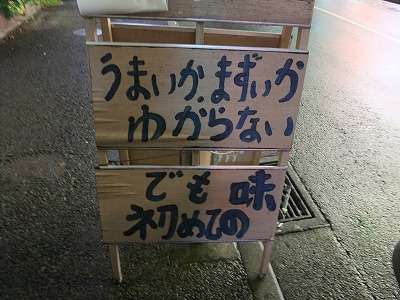 うまいか.まずいか
わがらない
でも味
初めての